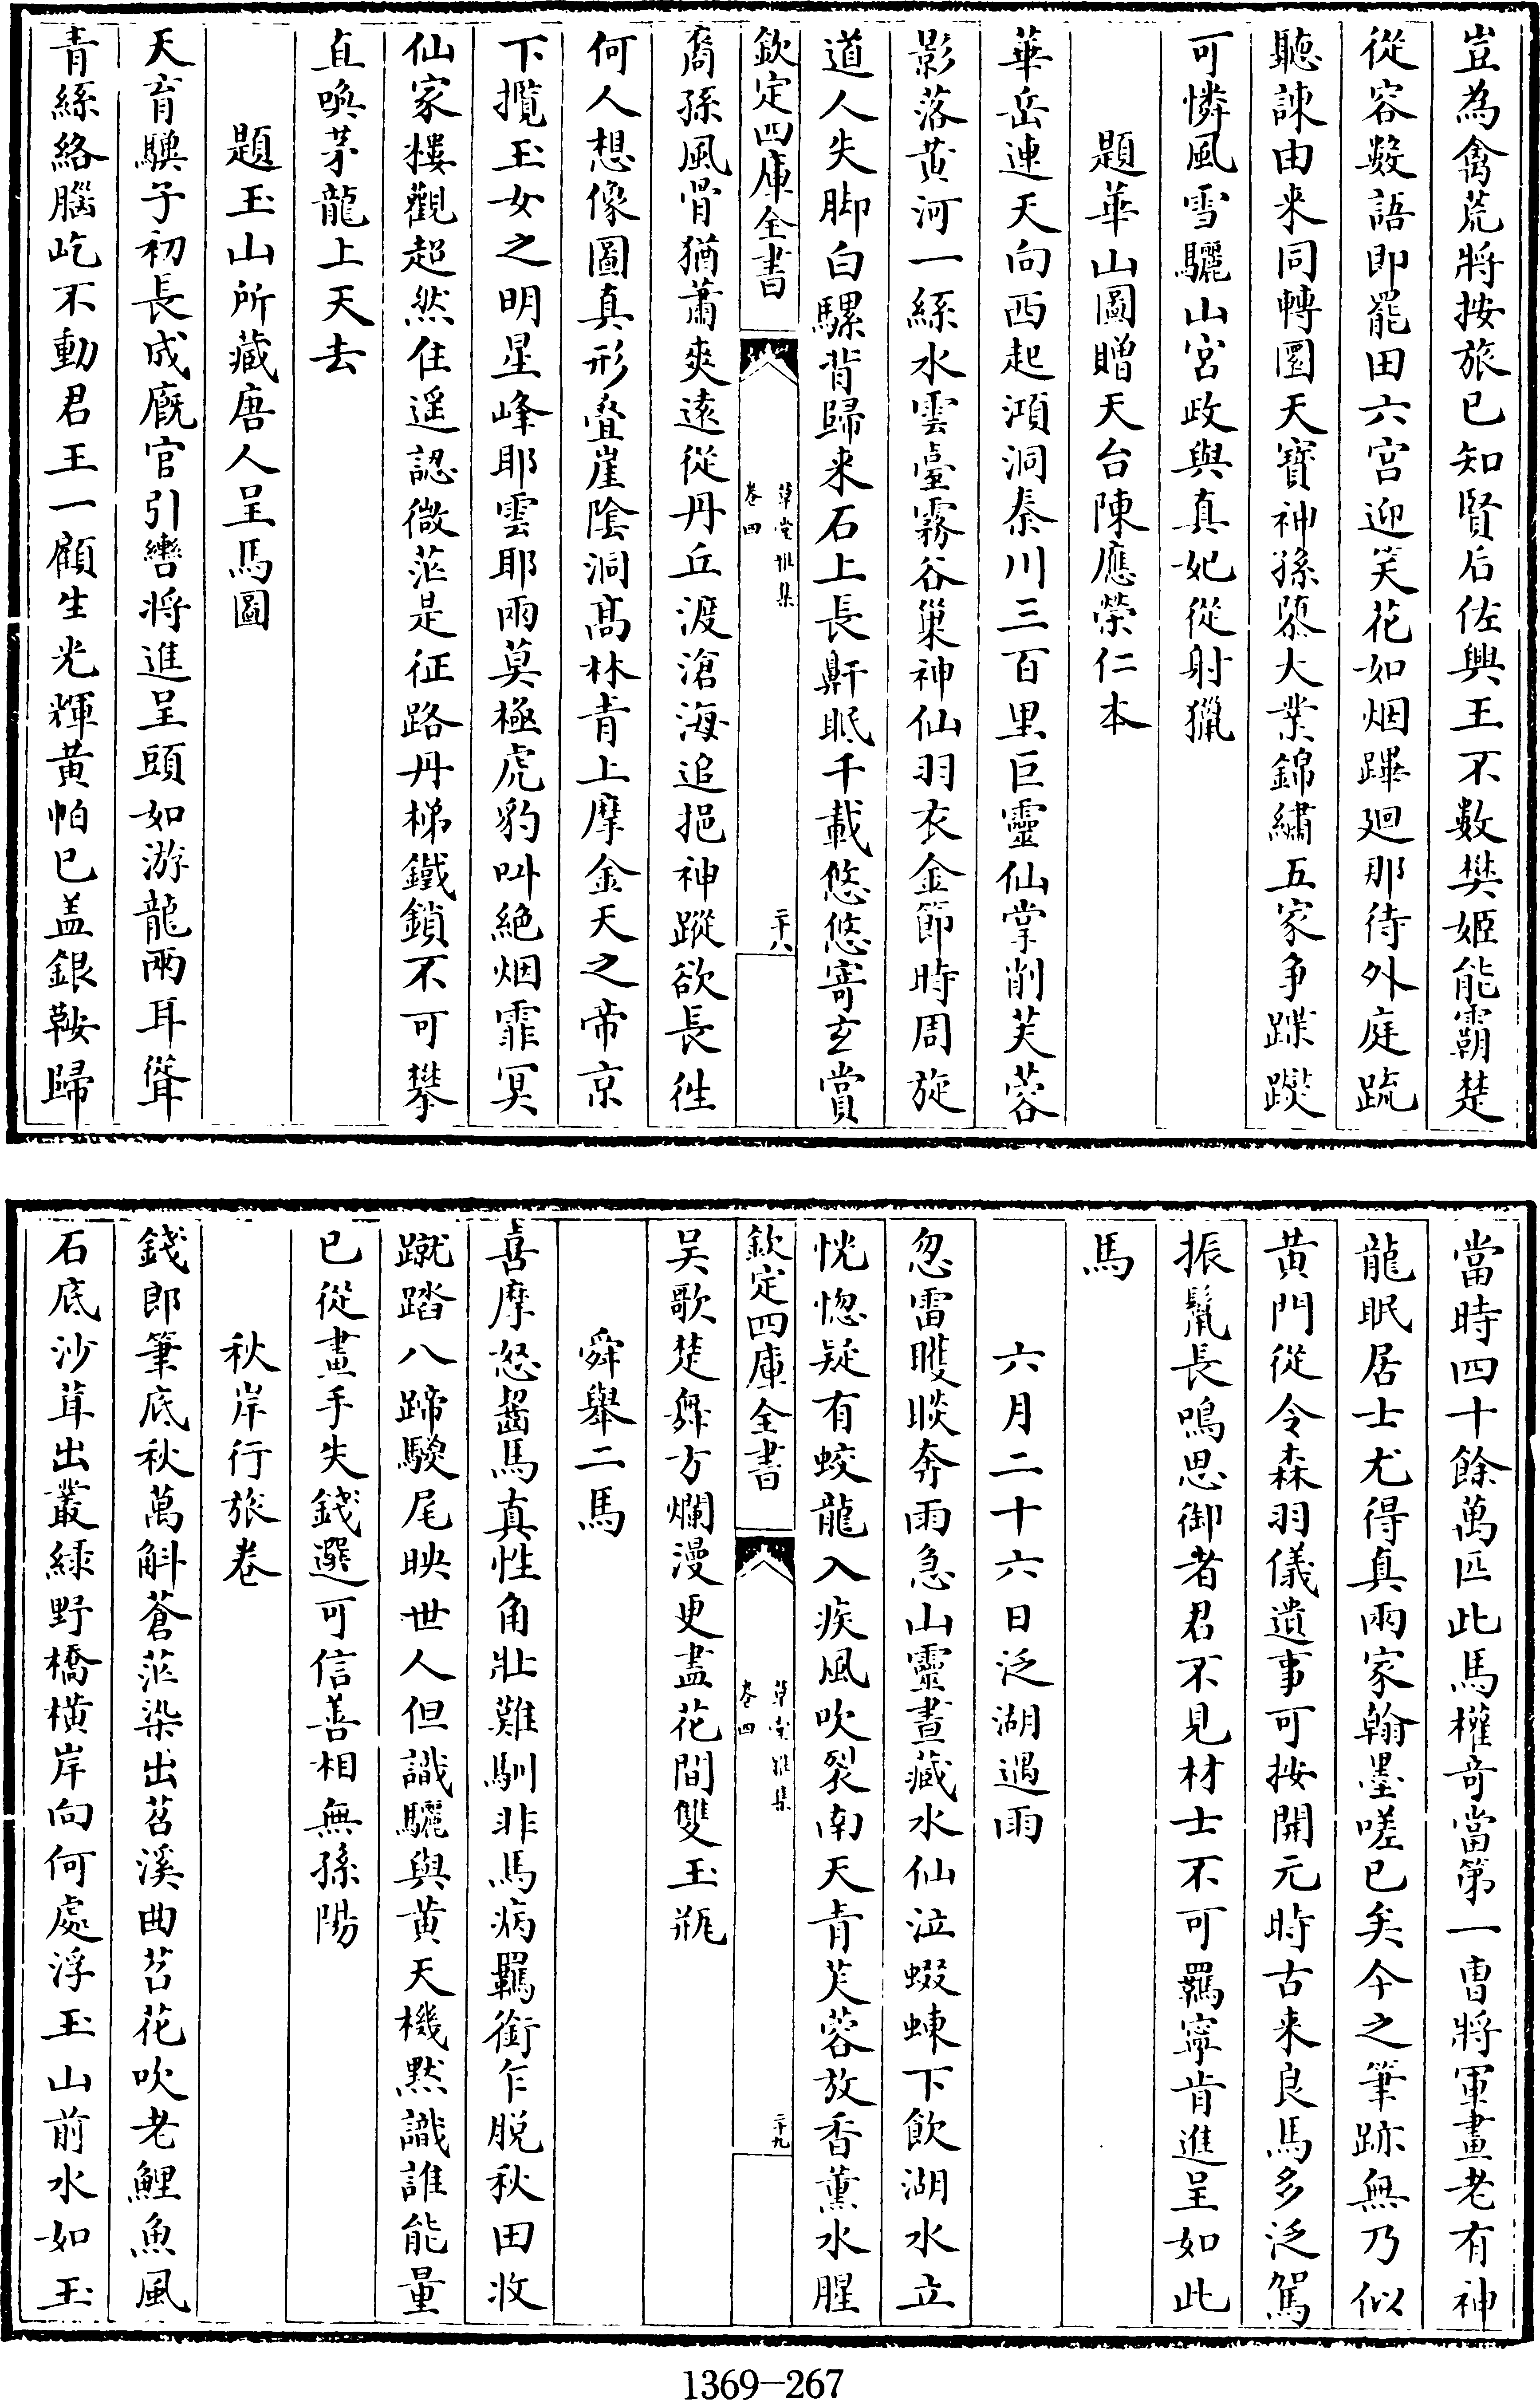 豈為禽荒將按旅已知賢后佐興王不數樊姬能霸楚
從容數語即罷田六宫迎笑花如烟蹕廻那待外庭疏
聽諫由来同轉圜天寳神孫隳大業錦繡五家争蹀躞
可憐風雪驪山宮政與真妃從射獵
題華山圖贈天台陳應榮仁本
華岳連天向西起澒洞秦川三百里巨靈仙掌削芙蓉
影落黄河一絲水雲臺霧谷巢神仙羽衣金節時周旋
道人失脚白騾背歸来石上長鼾眠千載悠悠寄玄賞
欽定四庫全書
草堂雅集
卷四
二十八
裔孫風骨猶蕭爽逺從丹丘渡滄海追挹神蹤欲長徃
何人想像圖真形叠崖陰洞髙林青上摩金天之帝京
下攬玉女之明星峰耶雲耶雨莫極虎豹叫絶烟霏冥
仙家樓觀超然住遥認微茫是征路丹梯鐵鎖不可攀
直喚茅龍上天去
題玉山所藏唐人呈馬圖
天育驥子初長成廐官引轡將進呈頭如游龍兩耳聳
青絲絡腦屹不動君王一顧生光輝黄帕已盖銀鞍歸
當時四十餘萬匹此馬權奇當第一曹將軍畫老有神
龍眠居士尤得真兩家翰墨嗟已矣今之筆跡無乃似
黄門從令森羽儀遺事可按開元時古来良馬多泛駕
振鬛長鳴思御者君不見材士不可羈寧肯進呈如此
馬
六月二十六日泛湖遇雨
忽雷矆睒奔雨急山靈晝藏水仙泣蝃蝀下飲湖水立
恍惚疑有蛟龍入疾風吹裂南天青芙蓉放香薰水腥
欽定四庫全書
草堂雅集
卷四
二十九
吴歌楚舞方爛漫更盡花間雙玉瓶
舜舉二馬
喜摩怒齧馬真性角壯難馴非馬病羈銜乍脱秋田收
蹴踏八蹄騣尾映世人但識驪與黄天機黙識誰能量
已從畫手失錢選可信善相無孫陽
秋岸行旅卷
錢郎筆底秋萬斛蒼茫染出苕溪曲苕花吹老鯉魚風
石底沙茸出叢緑野橋橫岸向何處浮玉山前水如玉
1369-267